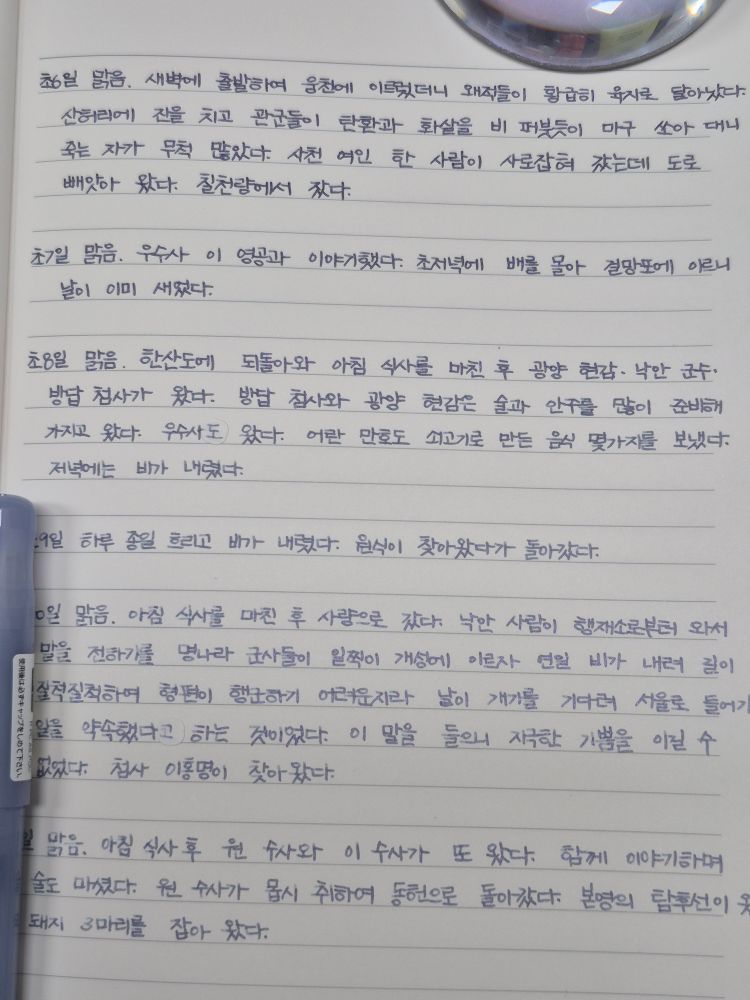 초6일 맑음. 새벽에 출발하여 웅천에 이르렀더니 왜적들이 황급히 육지로 달아났다.
산허리에 진을 치고 관군들이 탄환과 화살을 비 퍼붓듯이 마구 쏘아 대니
죽는 자가 무척 많았다. 사천 여인 한 사람이 사로잡혀 갔는데 도로
빼앗아 왔다. 칠천량에서 잤다.
초7일 맑음. 우수사 이 영공과 이야기했다. 초저녁에 배를 몰아 걸망포에 이르니
날이 이미 새었다.
초8일 맑음. 한산도에 되돌아와 아침 식사를 마친 후 광양 현감·낙안 군수·
방답 첨사가 왔다. 방답 첨사와 광양 현감은 술과 안주를 많이 준비해
가지고 왔다. 우수사도 왔다. 어란 만호도 쇠고기로 만든 음식 몇가지를 보냈다.
저녁에는 비가 내렸다.
9일 하루 종일 흐리고 비가 내렸다. 원식이 찾아왔다가 돌아갔다.
0일 맑음. 아침 식사를 마친 후 사량으로 갔다. 낙안 사람이 행재소로부터 와서
말을 전하기를 명나라 군사들이 일찍이 개성에 이르자 연일 비가 내려 길이
질척질척하여 형편이 행군하기 어려운지라 날이 개기를 기다려 서울로 들어가
일을 약속했다고 하는 것이었다. 이 말을 들으니 지극한 기쁨을 이길 수
없었다. 첨사 이홍명이 찾아왔다.
일 맑음. 아침 식사 후 원 수사와 이 수사가 또 왔다. 함께 이야기하며
술도 마셨다. 원 수사가 몹시 취하여 동헌으로 돌아갔다. 본영의 탐후선이 왔
돼지 3마리를 잡아 왔다.